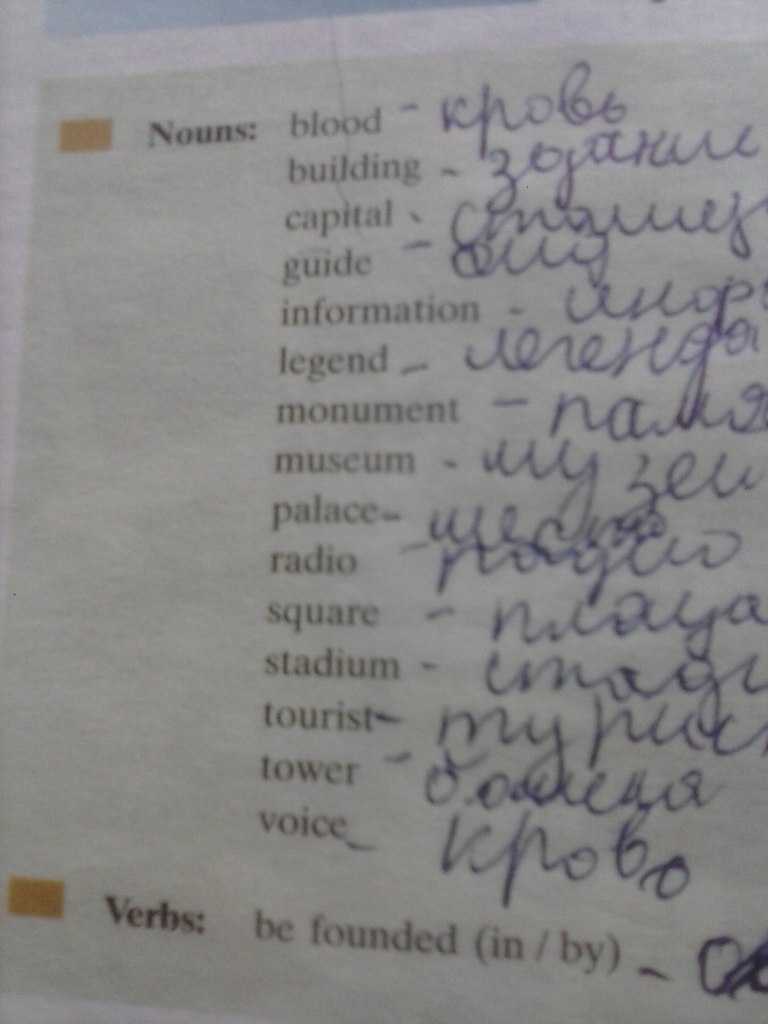 Nouns: blood - кровь
building - здание
capital -
guide - гид
information - инфор
legend - легенда
monument - памя
museum - музей
palace -
radio - радио
square - площа
stadium - стади
tourist - турис
tower - башня
voice - кровь
Verbs: be founded (in / by) -